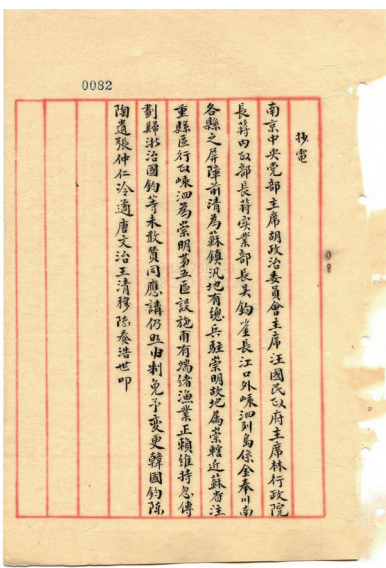 0082
抄電
南京中央党部主席胡政治委員會主席汪國民政府主席林行政院
長蔣内政部長蔣实業部長吴鈞鉴長江口外嵊泗列島係金奉川南
各縣之屏障前清為蘇鎮汛地有總兵駐崇明故地屬崇轄近蘇省注
重縣區行政嵊泗為崇明第五區設施甫有端绪漁業正賴維持忽傳
劃歸浙治國鈞等未敢贊同應請仍照旧制免予变更韓國鈞陈
陶遺張仲仁冷遹唐文治王清穆陈養浩世叩